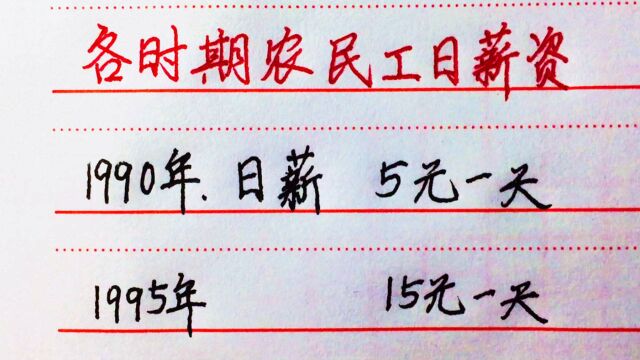 各时期农民工日薪资
1990年.日薪 5元一天
1995年 15元一天